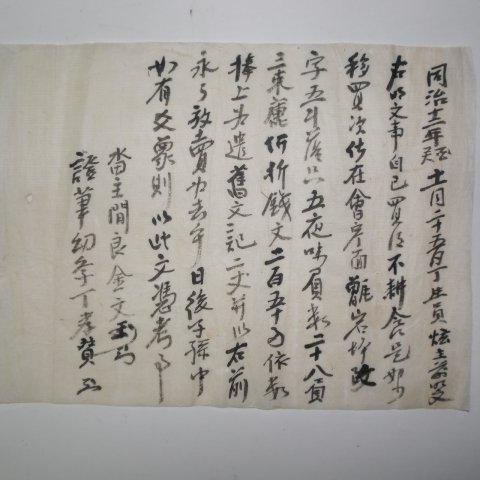 同治十二年癸酉十一月二十五日丁生員炫士前
右明文事自己買得耕食是如可
移買次伏在會寧面岩坪改
字五斗落只五夜味負數二十八負
三束庫價折錢文二百五十兩依數
捧上爲遣舊文記二丈幷以右前
永永放賣爲去乎日後子孫中
如有爻象則以此文憑考事
畓主閒良金文
證筆幼學丁孝贊